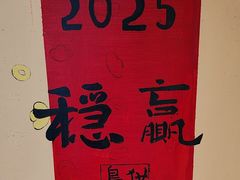 2025
穩贏